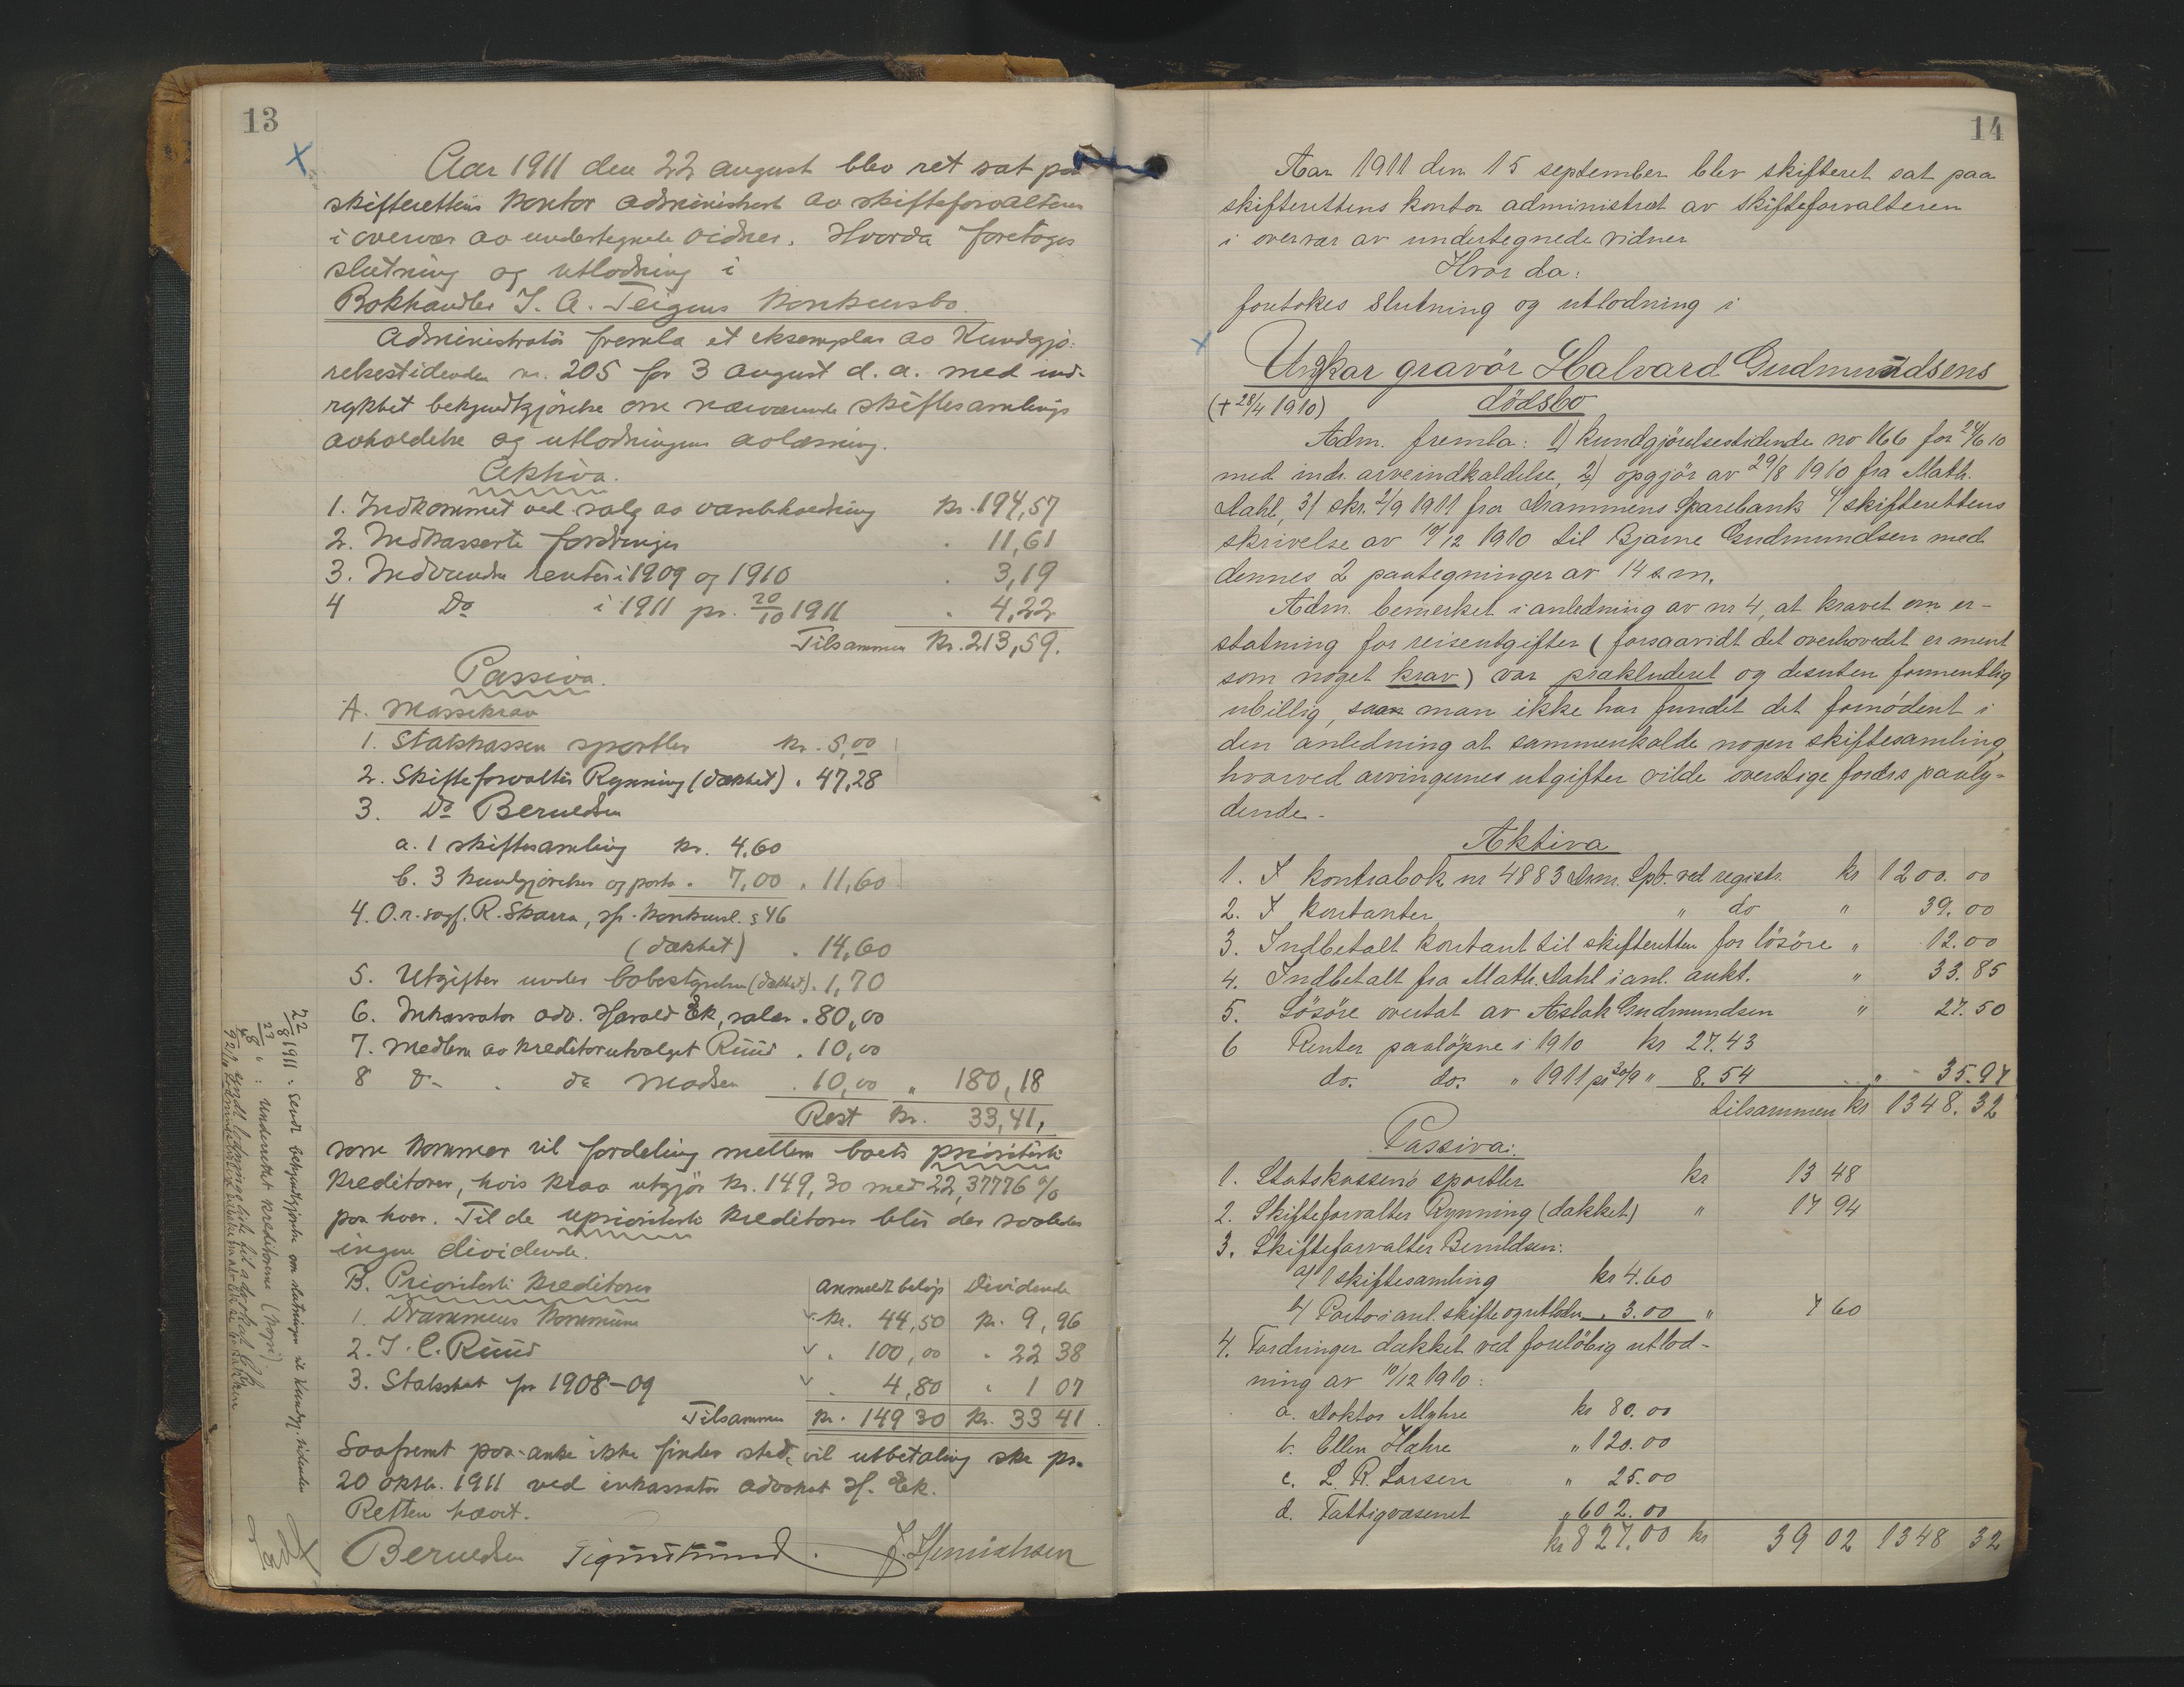 13
Aar 1911 den 22 august blev ret sat paa
skifterettens kontor administrert av skifteforvalteren
i overvær av undertegnede vidner. Hvorda foretoges
slutning og utlodning i
Bokhandler J. A. Teigens konkursbo.
Administrator fremla et eksemplar av Kundgjø-
relsestidende nr. 205 for 3 august d. a. med ind-
rykket bekjendtgjørelse om nærværende skiftesamlings
avholdelse og utlodningens avlæsning.
Aktiva.
1. Indkommet ved salg av varebeholdning kr. 194,57
2. Indkasserte fordringer . 11,61
3. Indvundne renter i 1909 og 1910 . 3,19
4 Do i 1911 pr. 20/10 1911 . 4,22
Tilsammen kr. 213,59.
Passiva.
A. Massekrav
1. Statskassen sportler kr. 5,00
2. Skifteforvalter Rynning (dækket) . 47,28
3. Do Beruldsen
a. 1 skiftesamling kr. 4,60
b. 3 kundgjørelser og porto . 7,00 . 11,60
4. O.r.sagf. R. Skarra, jfr. konkursl. § 46
(dækket) . 14,60
5. Utgifter under bobestyrelsen (dækket) . 1,70
6. Inkassator adv. Harald Ek, salær . 80,00
7. Medlem av kreditorutvalget Ruud . 10,00
8 Do . do Madsen . 10,00 „ 180,18
Rest kr. 33,41,
som kommer til fordeling mellem boets prioriterte
kreditorer, hvis krav utgjør kr. 149,30 med 22,37776 %
paa hver. Til de uprioriterte kreditorer blir der saaledes
ingen dividende.
B. Prioriterte kreditorer Anmeldt beløp Dividende
1. Drammens kommune kr. 44,50 kr. 9,96
2. J. C. Ruud . 100,00 . 22 38
3. Statsskat for 1908-09 . 4,80 . 1 07
Tilsammen kr. 149 30 kr. 33 41.
Saafremt paaanke ikke finder sted, vil utbetaling ske pr.
20 oktbr. 1911 ved inkassator advokat H. Ek.
Retten hævet.
Beruldsen Sigm. J. Henrichsen
22/8 1911. Sendt bekjendtgjørelse om slutningen til Kundgj.tidenden
23/8 " : Underrettet kreditorene (kopi)
14
Aar 1911 den 15 september blev skifteret sat paa
skifterettens kontor administrert av skifteforvalteren
i overvær av undertegnede vidner
Hvor da:
foretokes slutning og utlodning i
Ungkar gravör Halvard Gudmundsens
(+ 28/4 1910) dödsbo
Adm. fremla: 1) Kundgjörelsestidende no 166 for 24/6 10
med indr. arveindkaldelse, 2) opgjör av 29/8 1910 fra Math.
Dahl, 3) skr. 2/9 1911 fra Drammens Sparebank 4) skifterettens
skrivelse av 10/12 1910 til Bjarne Gudmundsen med
dennes 2 paategninger av 14 s.m.
Adm. bemerket i anledning av nr 4, at kravet om er-
statning for reiseutgifter (forsaavidt det overhovedet er ment
som noget krav) var prækluderet og desuten formentlig
ubillig, saa man ikke har fundet det fornödent i
den anledning at sammenkalde nogen skiftesamling,
hvorved arvingernes utgifter vilde overstige fordrs paaly-
dende.
Aktiva
1. I kontrabok nr 4883 Drm. Spb. ved registr. kr 1200.00
2. I kontanter " do " 39.00
3. Indbetalt kontant til skifteretten for lösöre " 12.00
4. Indbetalt fra Math. Dahl i anl. aukt. " 33.85
5. Lösöre overtat av Aslak Gudmundsen " 27.50
6 Renter paalöpne i 1910 kr 27.43
do. do. " 1911 pr 30/9 " 8.54 " 35.97
tilsammen kr 1348.32
Passiva:
1. Statskassens sportler kr 13 48
2. Skifteforvalter Rynning (dækket) " 17 94
3. Skifteforvalter Beruldsen:
a) 1 skiftesamling kr 4.60
b) Porto i anl. skifte og utlodn. . 3.00 " 7 60
4. Fordringer dækket ved forelöbig utlod-
ning av 10/12 1910:
a. Doktor Myhre kr 80.00
b. Ellen Hahre " 120.00
c. L. R. Larsen " 25.00
d. Fattigvæsenet " 602.00
kr 827.00 kr 39 02 1348 32